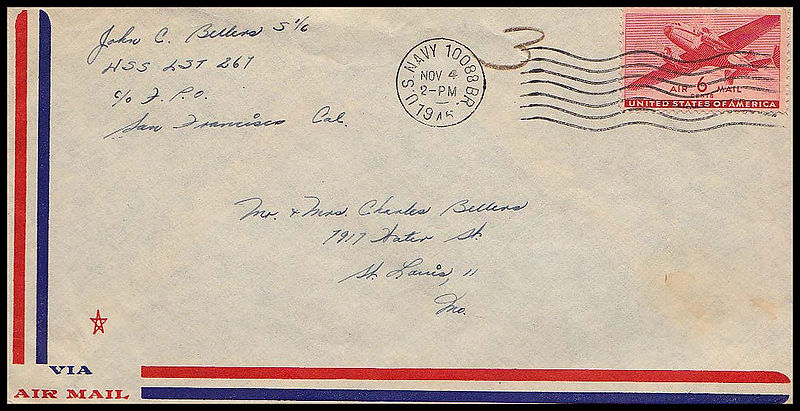 John C. Bellers S 1/c
USS LST 267
c/o F.P.O.
San Francisco Cal.
U.S. NAVY 10088 BR.
NOV 4
2-PM
1945
3
AIR 6 MAIL
CENTS
UNITED STATES OF AMERICA
Mr. & Mrs. Charles Bellers
7917 Water St.
St. Louis, 11
Mo.
VIA
AIR MAIL